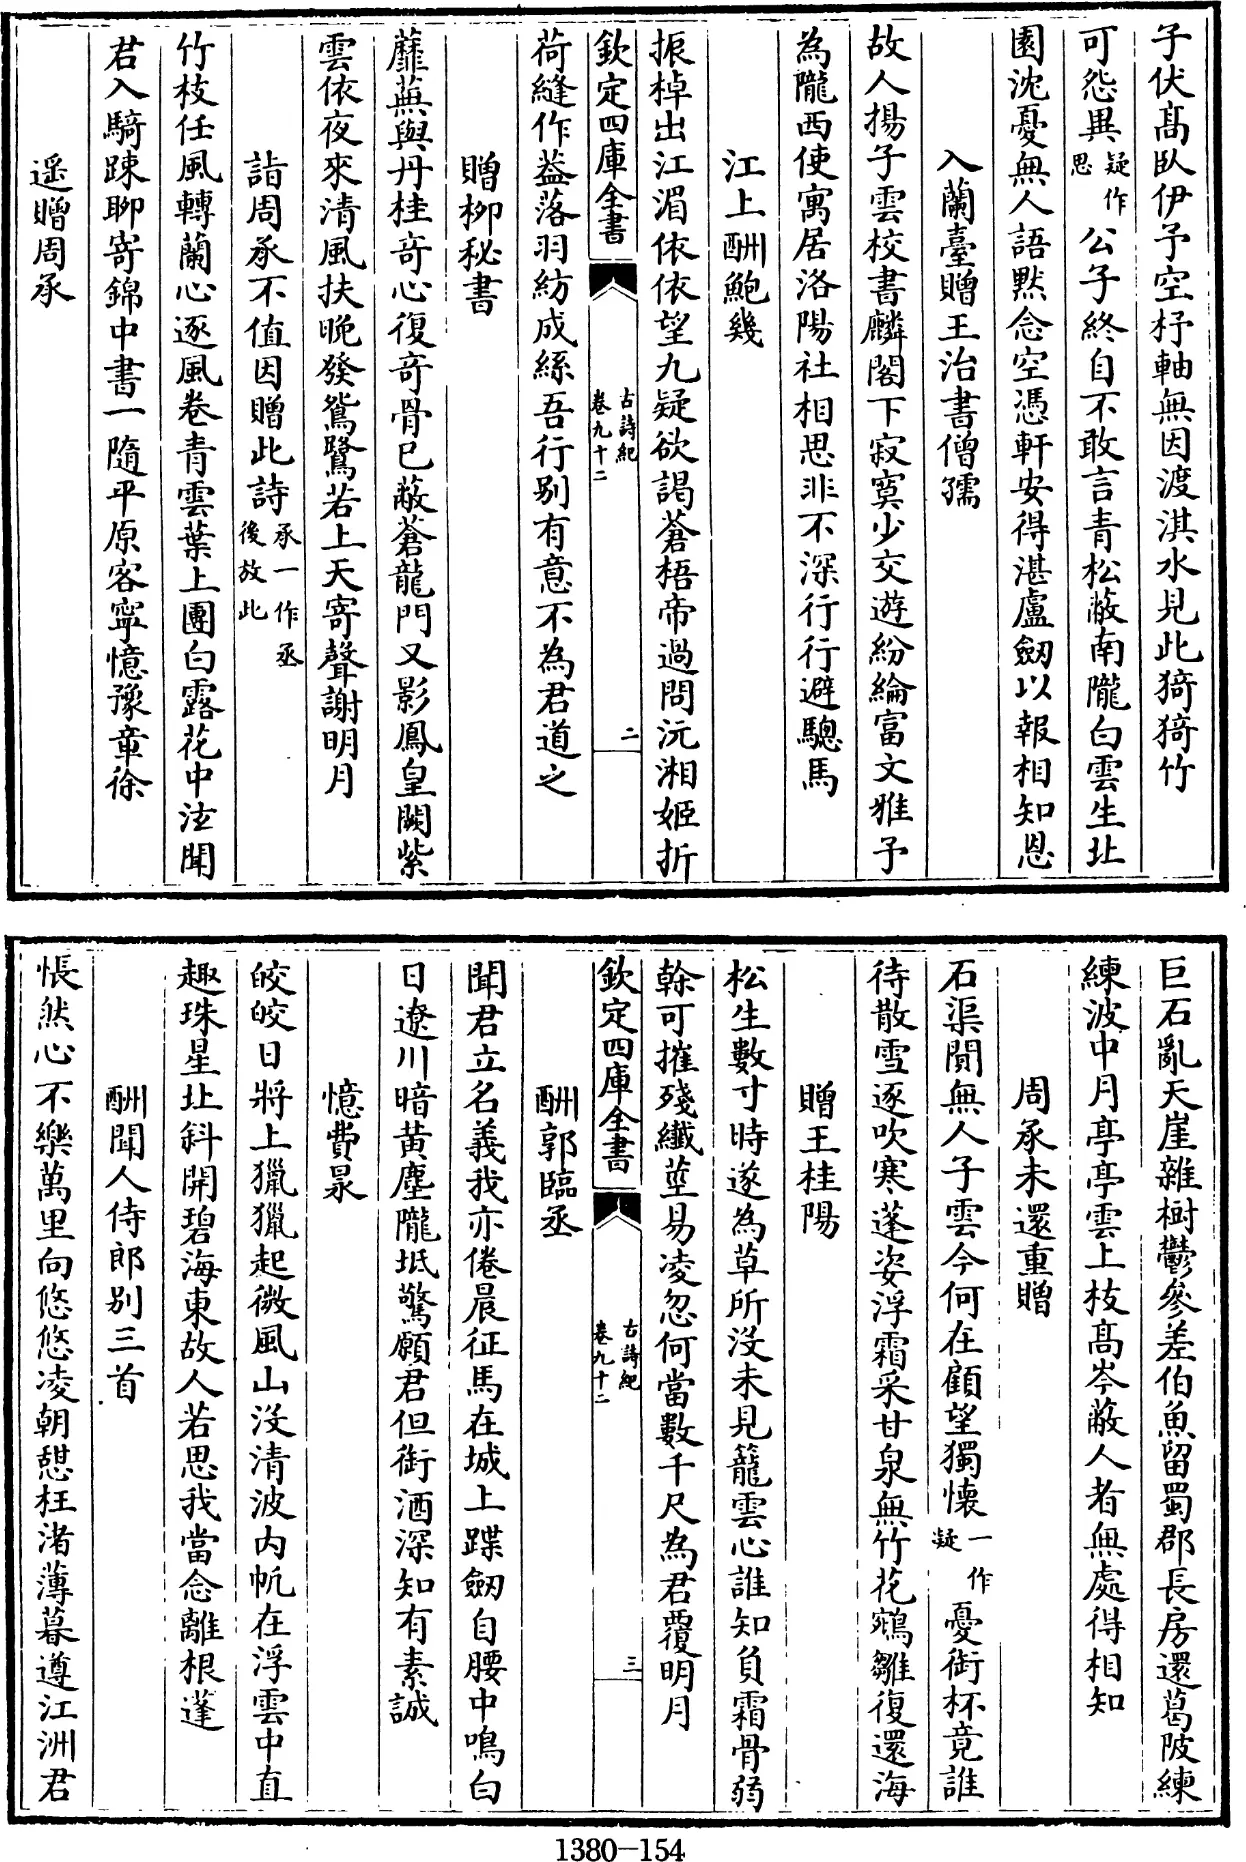 子伏髙臥伊予空杼軸無因渡淇水見此猗猗竹
可怨異疑作思公子終自不敢言青松蔽南隴白雲生北
園沈憂無人語默念空憑軒安得湛盧劒以報相知恩
入蘭臺贈王治書僧孺
故人揚子雲校書麟閣下寂寞少交遊紛綸富文雅予
為隴西使寓居洛陽社相思非不深行行避驄馬
江上酬鮑幾
振棹出江湄依依望九疑欲謁蒼梧帝過問沅湘姬折
欽定四庫全書
古詩紀
卷九十二
二
荷縫作葢落羽紡成絲吾行别有意不為君道之
贈柳秘書
蘼蕪與丹桂竒心復竒骨已蔽蒼龍門又影鳳皇闕紫
雲依夜來清風扶晚發鴛鷺若上天寄聲謝明月
詣周承不值因贈此詩承一作丞後放此
竹枝任風轉蘭心逐風卷青雲葉上團白露花中泫聞
君入騎踈聊寄錦中書一隨平原客寧憶豫章徐
遥贈周承
巨石亂天崖雜樹鬱參差伯魚留蜀郡長房還葛陂練
練波中月亭亭雲上枝髙岑蔽人者無處得相知
周承未還重贈
石渠閴無人子雲今何在顧望獨懐一作疑憂銜杯竟誰
待散雪逐吹寒蓬姿浮霜采甘泉無竹花鵷雛復還海
贈王桂陽
松生數寸時遂為草所没未見籠雲心誰知負霜骨弱
榦可摧殘纎莖易凌忽何當數千尺為君覆明月
欽定四庫全書
古詩紀
卷九十二
三
酬郭臨丞
聞君立名義我亦倦晨征馬在城上蹀劒自腰中鳴白
日遼川暗黄塵隴坻驚願君但銜酒深知有素誠
憶費㫤
皎皎日將上獵獵起微風山没清波内帆在浮雲中直
趣珠星北斜開碧海東故人若思我當念離根蓬
酬聞人侍郎别三首
悵然心不樂萬里向悠悠凌朝憩枉渚薄暮遵江洲君
1380-154